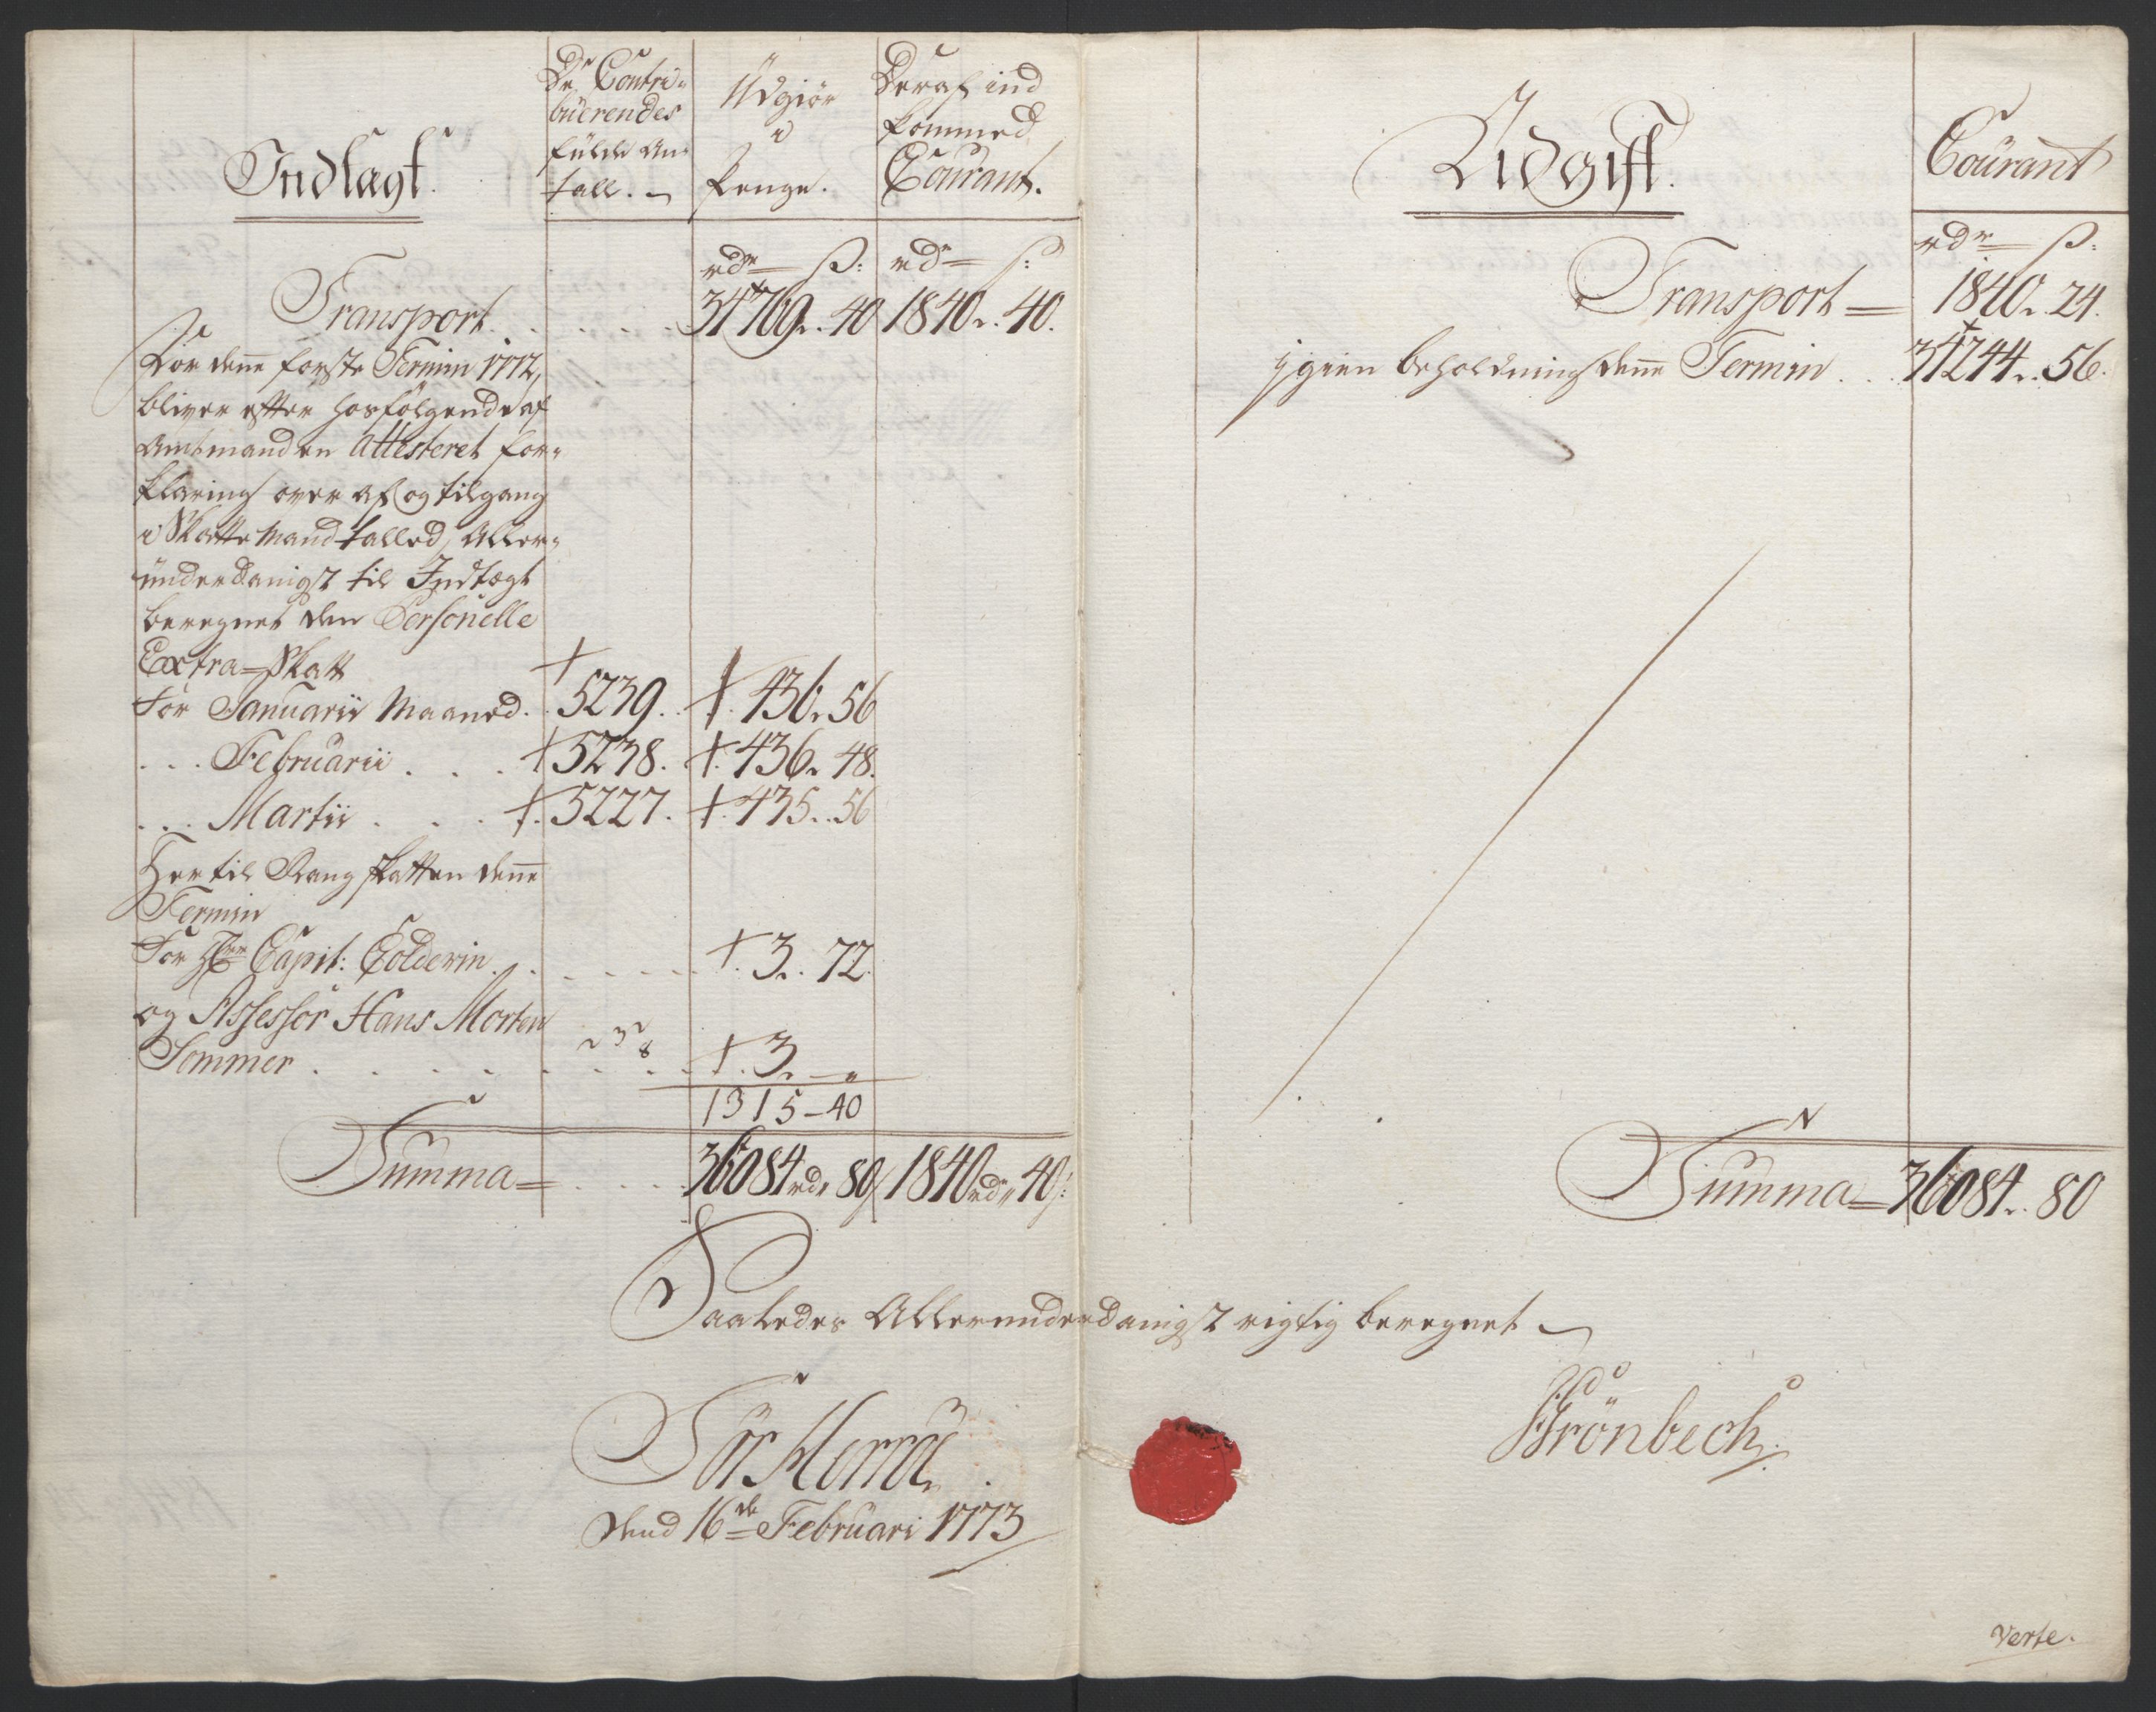 Indtægt.
De Contri-
buerendes
fulde An-
tall.
Udgiør
i
Penge.
Deraf ind
kommed
Courant.
rdr ß: rdr ß:
Transport . . . . . 34769.. 40 1840.. 40.
For denne første Termin 1772,
bliver efter hosfölgende af
Amtmanden Attesteret for-
klaring over af og tilgang
i Skatte Mandtalled, Aller-
ünderdanigst til Indtægt
beregnet den Personelle
Extra-Skatt
for Januarii Maaned. . 5239. 436. 56
. . . Februarii . . . 5238. 436. 48.
. . . Martii . . . 5227. 435.. 56
Her til Rangskatten denne
Termin
For Hrr Capit: Colderin . . . . . 3.. 72.
og Assessor Hans Morten
Sommer . . . . . . . 3. — „
1315 – 40
Summa = . . . . 36084 rdr 80ß 1840 rdr 40ß:
Udgift.
Courant
rdr ß:
Transport = 1840.. 24.
igien beholdning denne Termin . . 34244.. 56.
Summa = 36084.. 80
Saaledes Allerunderdanigst rigtig beregnet
Sör Herröe.
dend 16de Februari 1773
Grönbech.
Verte.